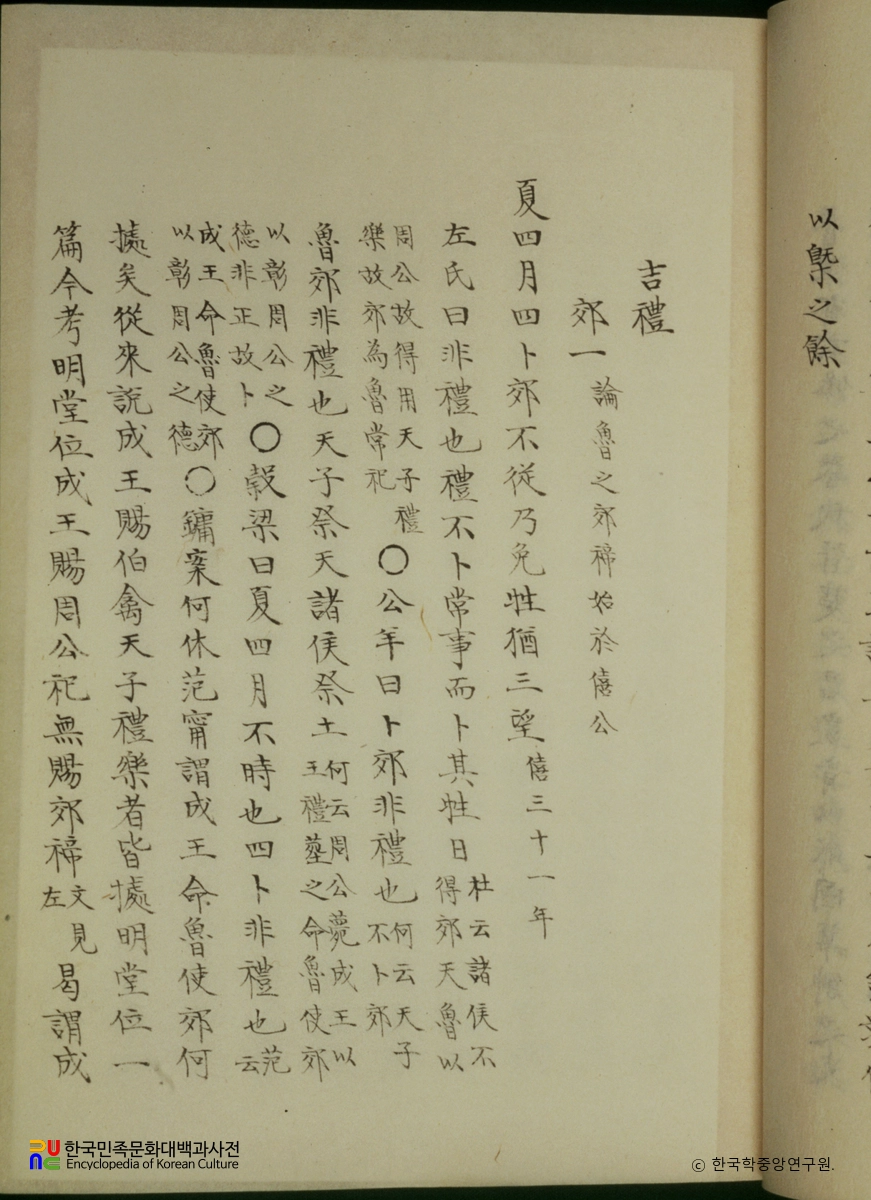 以槩之餘
吉禮
郊一 論魯之郊禘始於僖公
夏四月四卜郊不從乃免牲猶三望 僖三十一年
左氏曰非禮也禮不卜常事而卜其牲日 杜云諸侯不得郊天魯以
周公故得用天子禮樂故郊為魯常祀〇公羊曰卜郊非禮也 何云天子不卜郊
魯郊非禮也天子祭天諸侯祭土 何云周公薨成王以王禮葬之命魯使郊
以彰周公之德非正故卜〇穀梁曰夏四月不時也四卜非禮也 范云
成王命魯使郊以彰周公之德〇鏞案何休范甯謂成王命魯使郊何
據矣從來説成王賜伯禽天子禮樂者皆據明堂位一
篇今考明堂位成王賜周公祀無賜郊禘 文見左 曷謂成
한국민족문화대백과사전
Encyclopedia of Korean Culture
ⓒ 한국학중앙연구원.